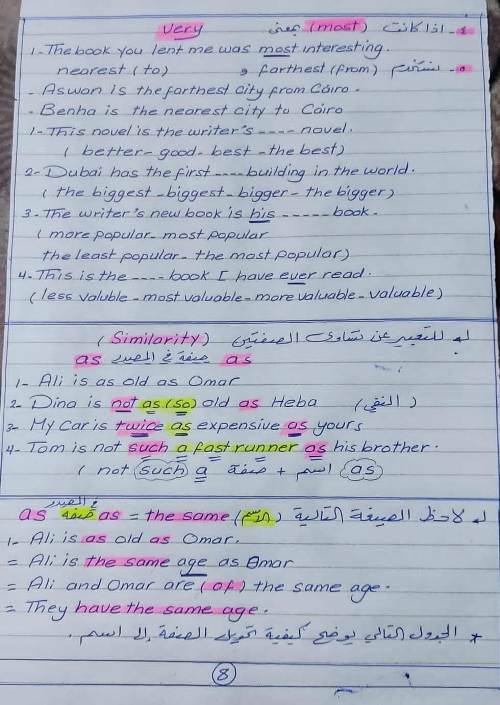 ٤- اذا كانت (most) بمعنى very
1- The book you lent me was most interesting.
٥- نستخدم farthest (from) و nearest (to)
- Aswan is the farthest city from Cairo.
- Benha is the nearest city to Cairo
1- This novel is the writer's ---- novel.
( better - good - best - the best)
2- Dubai has the first ---- building in the world.
( the biggest - biggest - bigger - the bigger)
3- The writer's new book is his ------ book.
( more popular - most popular
the least popular - the most popular)
4- This is the ---- book I have ever read.
(less valuble - most valuable - more valuable - valuable)
له للتعبير عن تساوى الصفتين (Similarity)
as صفة في المصدر as
1- Ali is as old as Omar
2- Dina is not as (so) old as Heba (النفي)
3- My car is twice as expensive as yours
4- Tom is not such a fast runner as his brother.
( not such a صفة + اسم as)
له لاحظ الصيغة التالية (الاسم) the same = as صفة في المصدر as
1- Ali is as old as Omar.
= Ali is the same age as Omar
= Ali and Omar are (of) the same age.
= They have the same age.
* الجدول التالي يوضح كيفية تحويل الصفة إلى اسم.
8